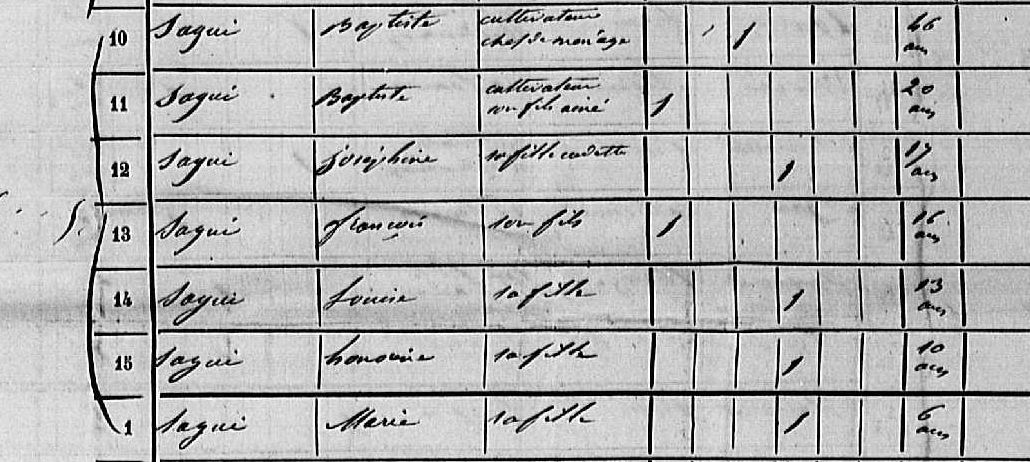 10 Sagui Baptiste cultivateur chef de menage 1 46 ans
11 Sagui Baptiste cultivateur son fils ainé 1 20 ans
12 Sagui joséphine sa fille cadette 1 17 ans
13 Sagui françois son fils 1 16 ans
14 Sagui Louise sa fille 1 13 ans
15 Sagui honorine sa fille 1 10 ans
1 Sagui Marie sa fille 1 6 ans